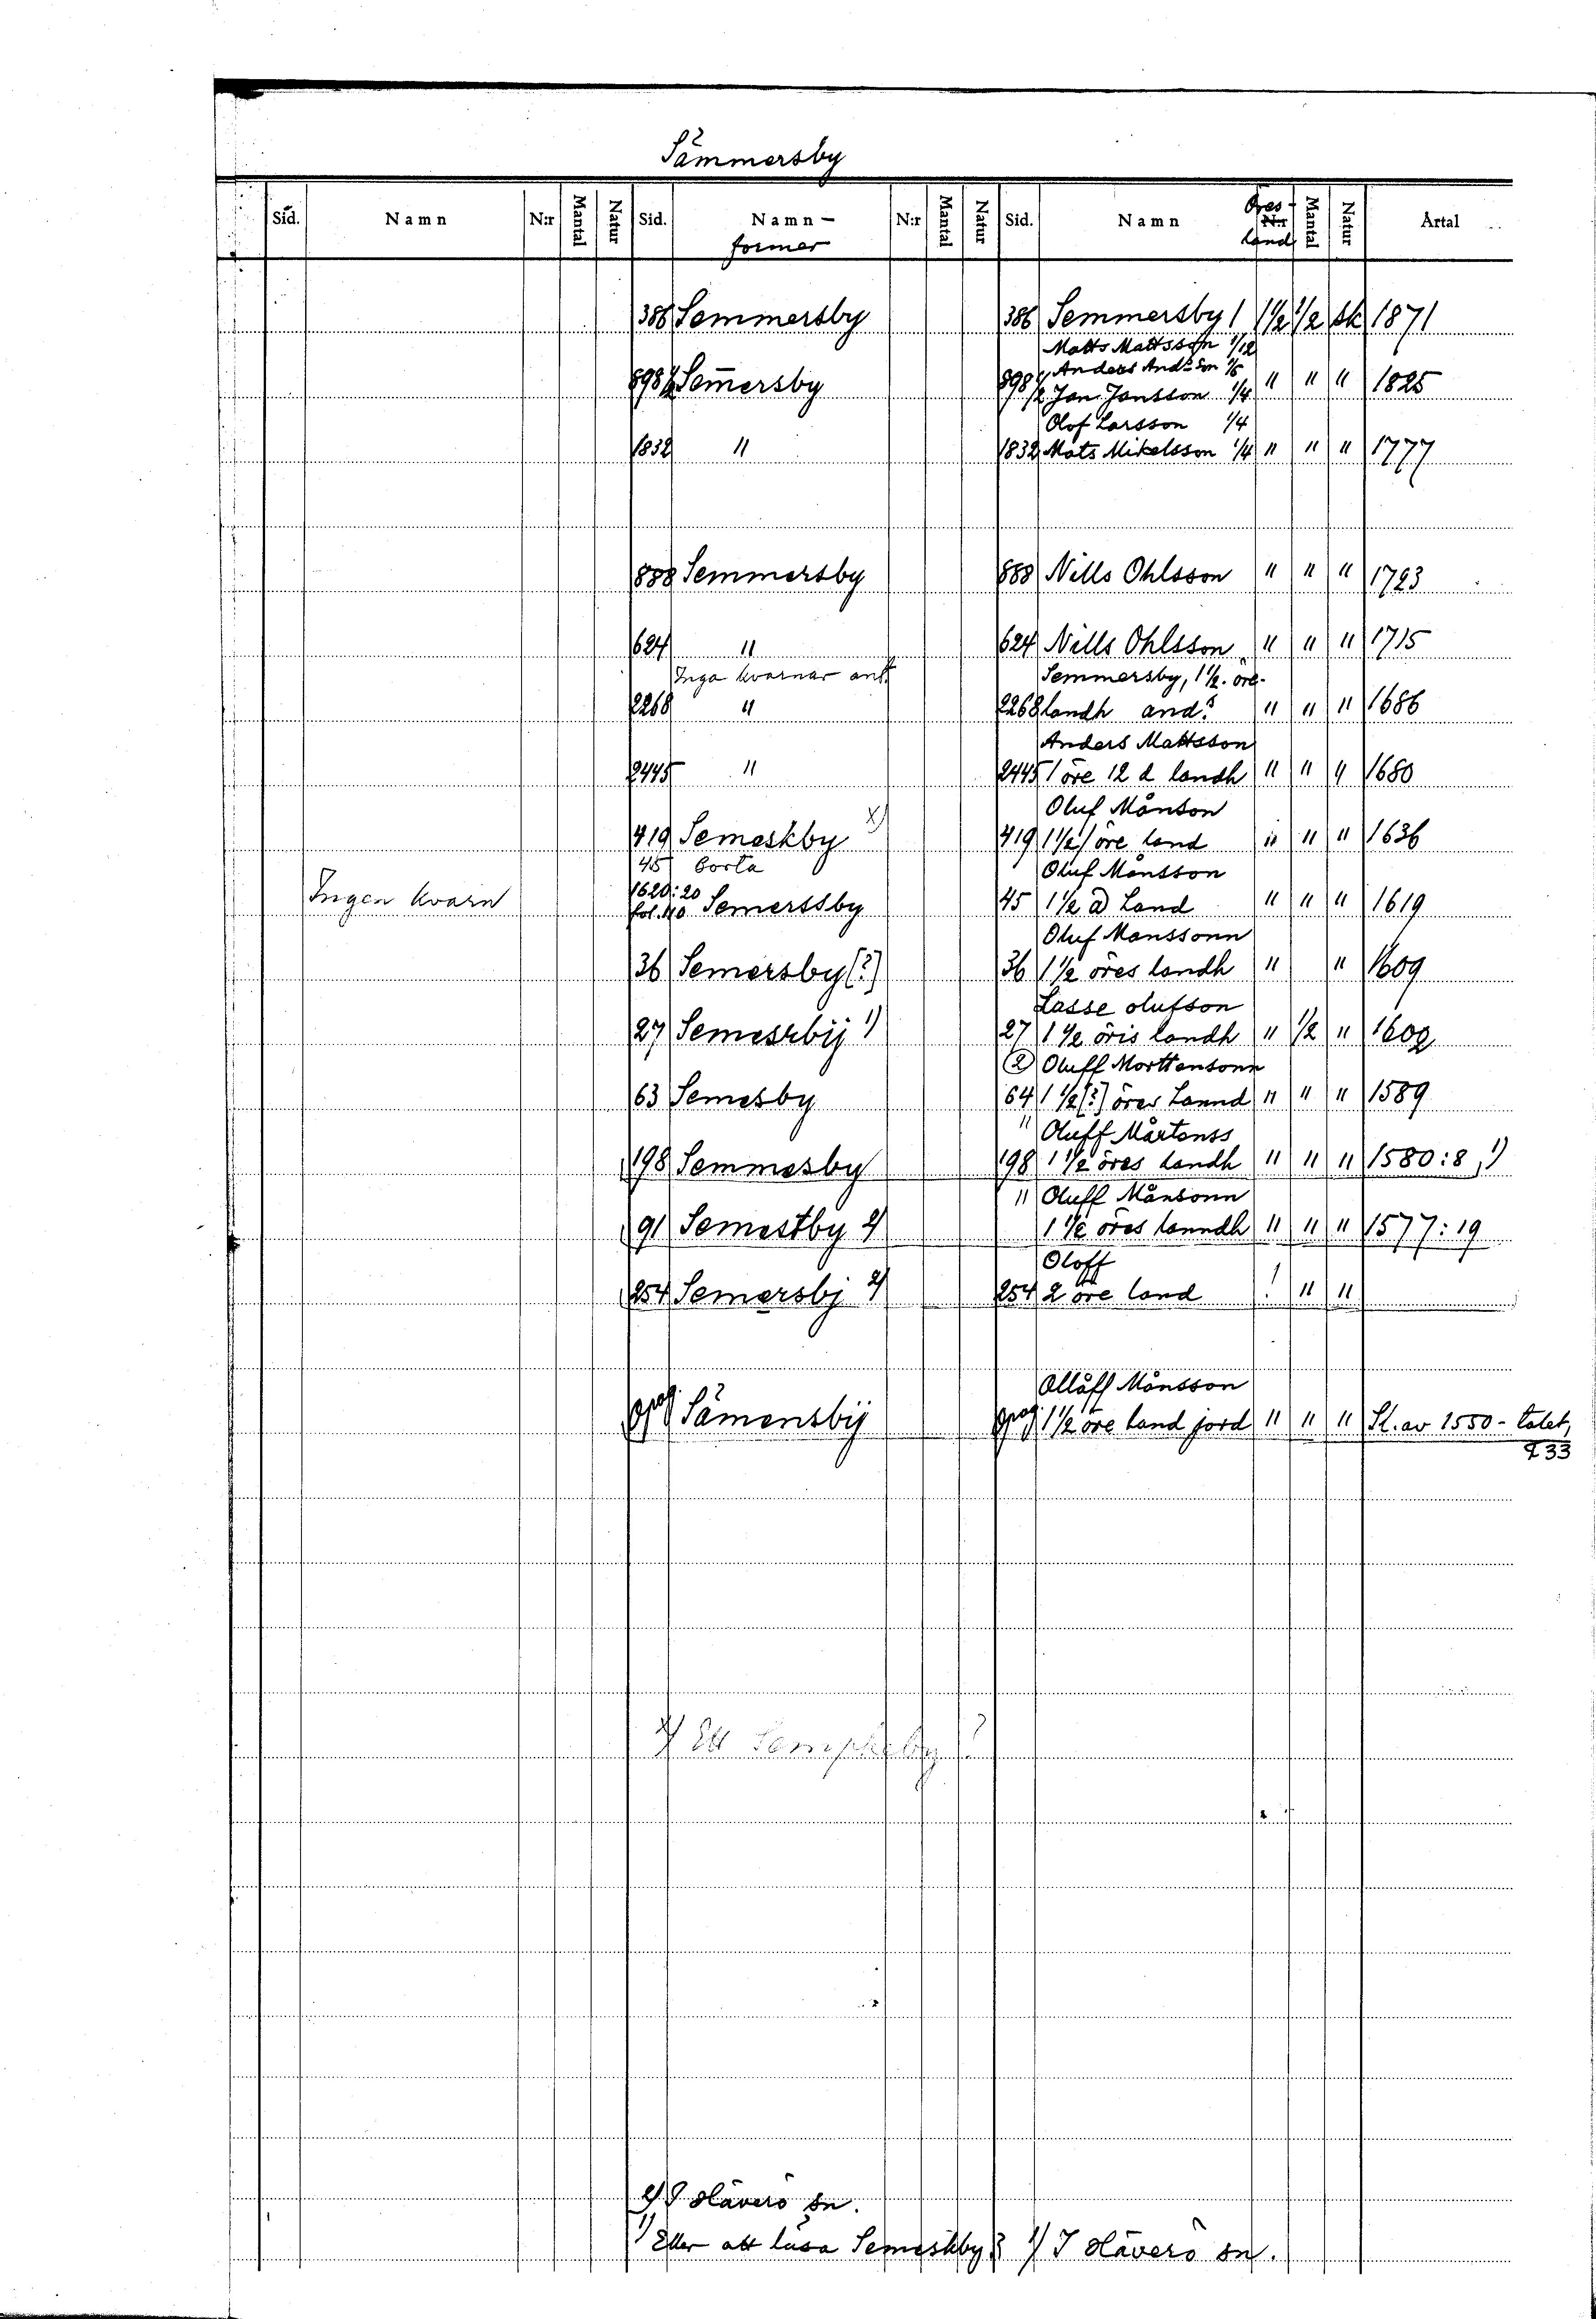 Sämmersby
Sid. Namn N:r Mantal Natur Sid. Namn- N:r Mantal Natur Sid. Namn Öres- N:r Mantal Natur Årtal
former land
386 Semmersby 386 Semmersby 1 1½ ½ sk 1871
Matts Mattsson 1/12
Anders And:sson 1/6
898½ Sem̄ersby 898½ Jan Jansson 1/4 " " " 1825
Olof Larsson 1/4
1832 " 1832 Mats Mikelsson 1/4 " " " 1777
888 Semmersby 888 Nills Ohlsson " " " 1723
624 " 624 Nills Ohlsson " " " 1715
Inga kvarnar ant. Semmersby, 1½ öre-
2268 " 2268 landh and:s " " " 1686
Anders Mattsson
2445 " 2445 1 öre 12 d landh " " " 1680
Oluf Månson
419 Semeskby x) 419 1½ öre land " " " 1636
45 borta Oluf Månsson
Ingen kvarn 1620:20 fol. 40 Semerssby 45 1½ Land " " " 1619
Oluf Monssonn
36 Semersby [?] 36 1½ öres landh " " 1609
Lasse olufson
27 Semesrbij 1) 27 1½ öris landh " ½ " 1602
2 Oluff Morttensonn
63 Semesby 64 1½ [?] öres Lannd " " " 1589
" Oluff Mårtenss
198 Semmesby 198 1½ öres landh " " " 1580:8, 1)
" Oluff Månsonn
91 Semestby 2) 1½ öres lanndh " " " 1577:19
Oloff
254 Semersbj 2) 254 2 öre land ! " "
Ollåff Månsson
opag. Sämensbij opag. 1½ öre land jord " " " Sl. av 1550-talet,
233
2) I Häverö sn.
1) Eller att läsa Semeskby? 1) I Häverö sn.